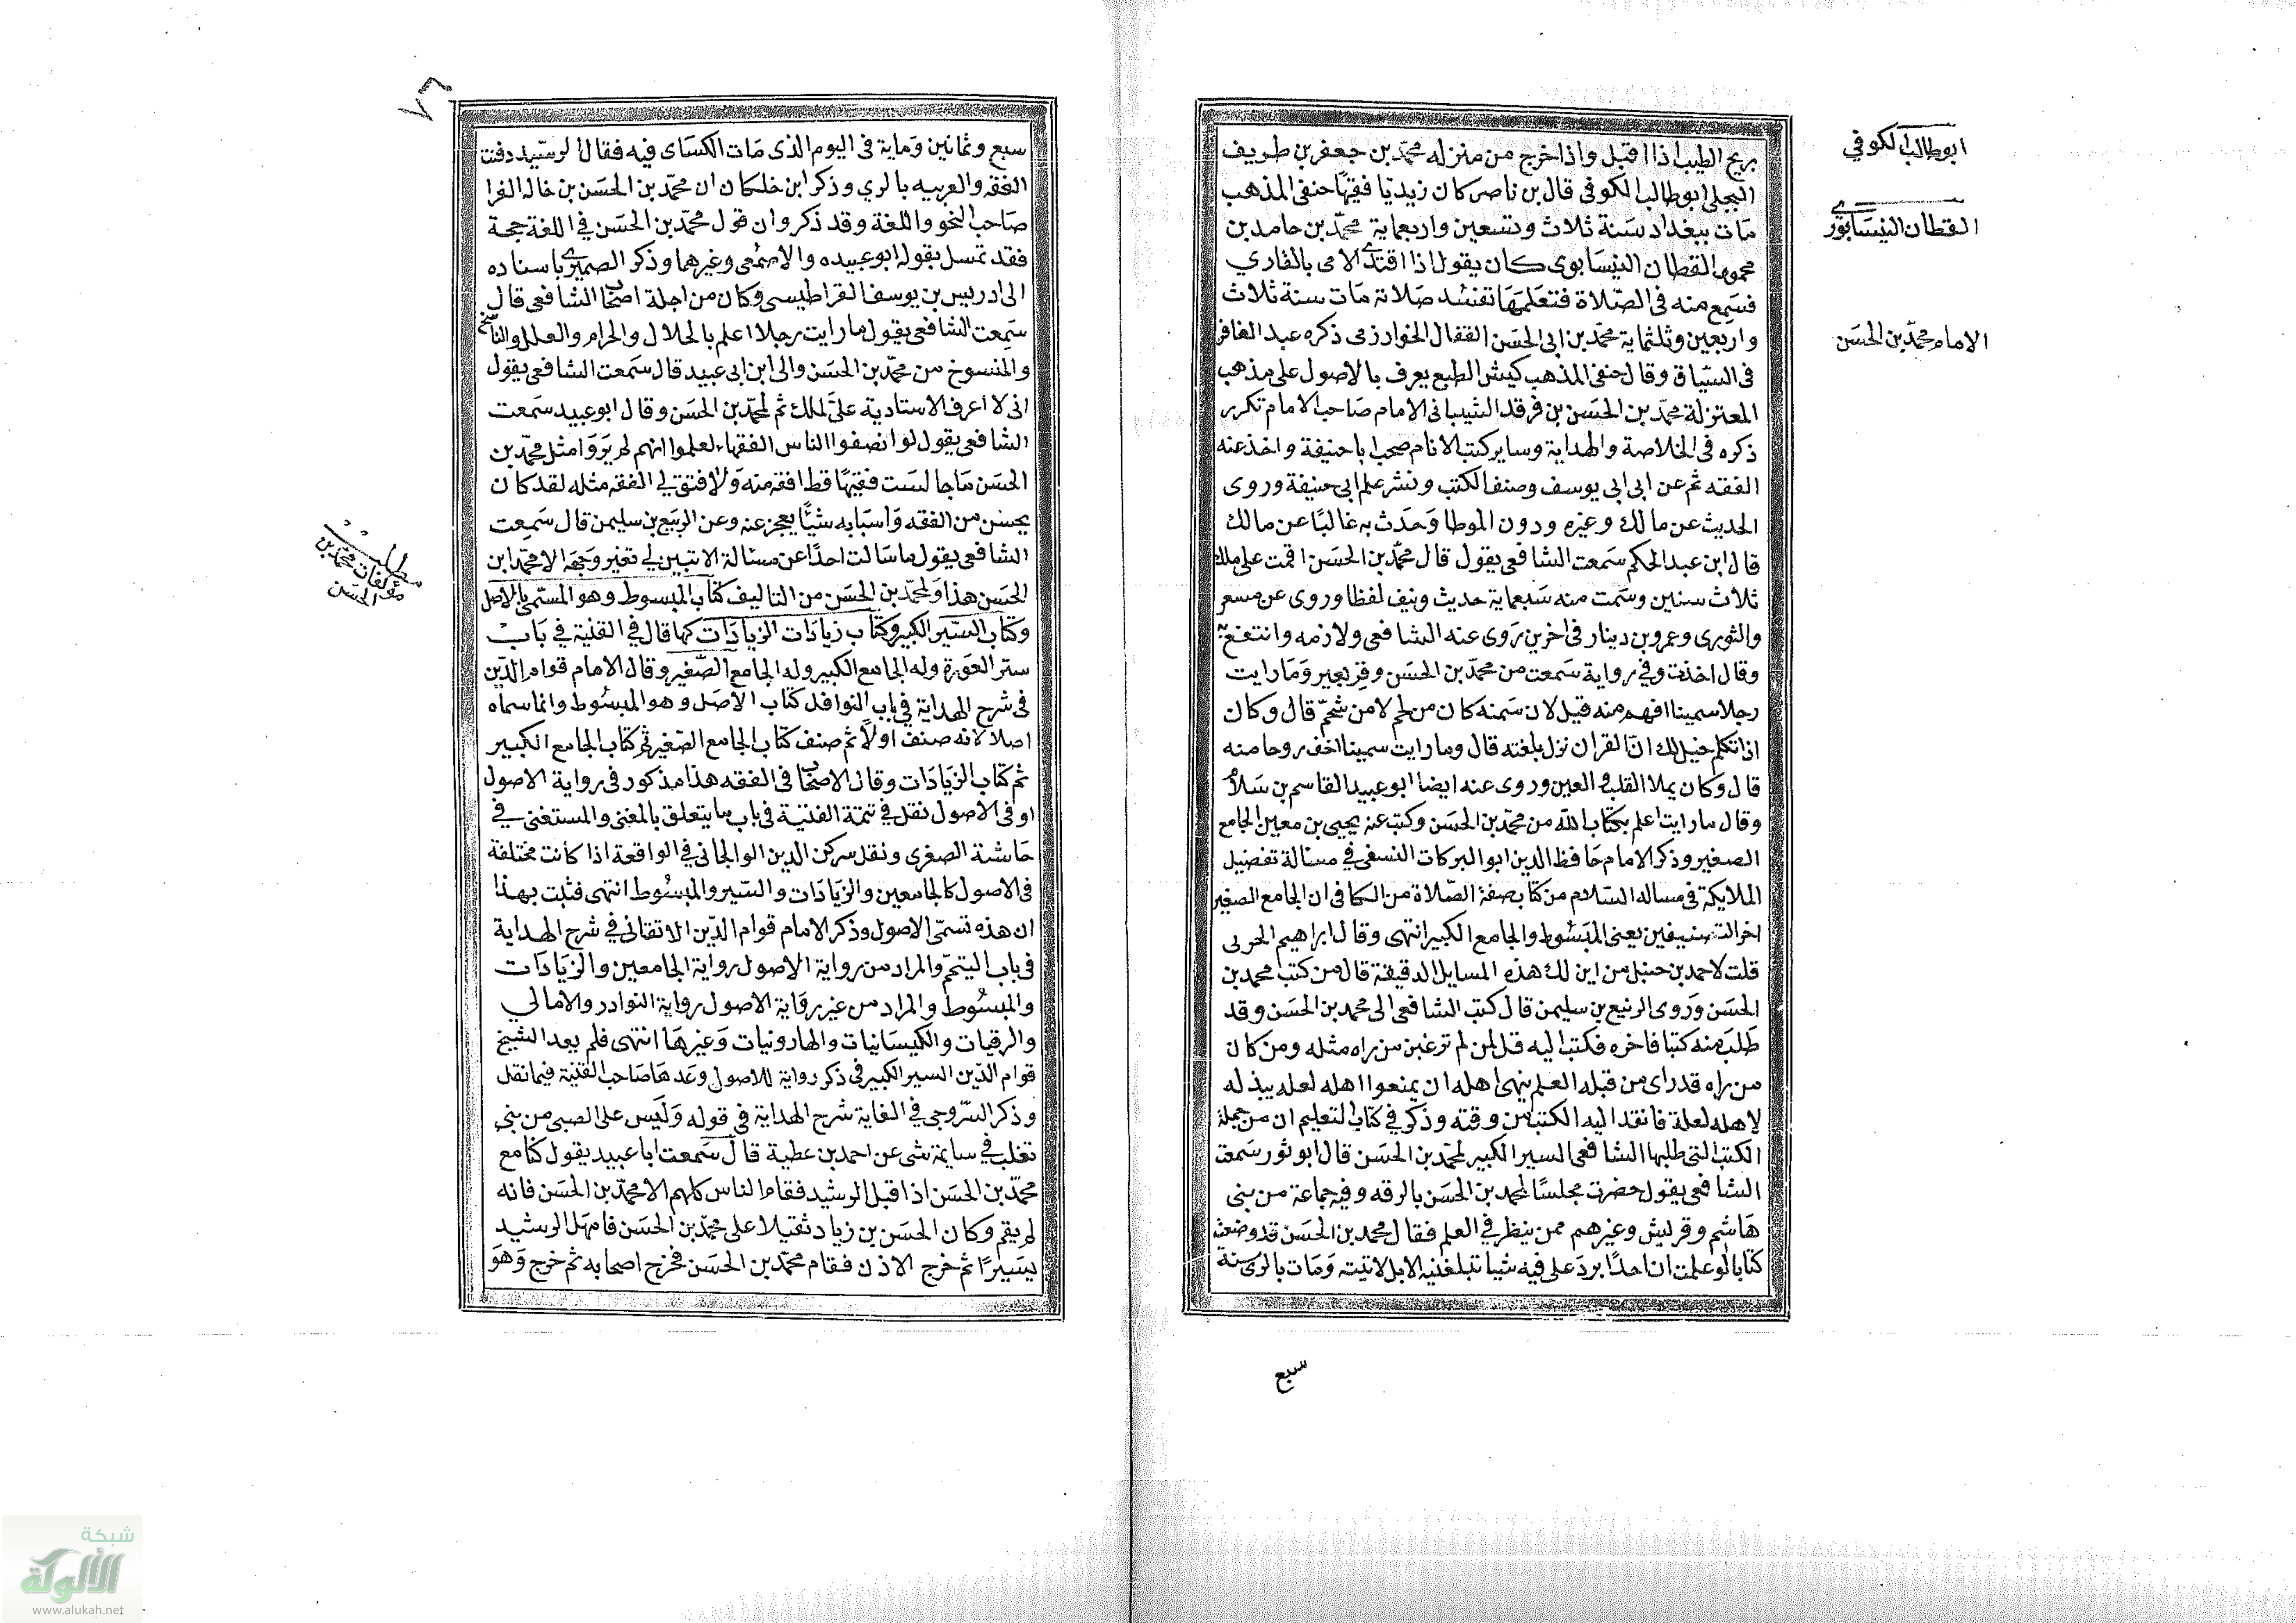 ابو طالب الكوفي
القطان النيسابوري
الامام محمد بن الحسن
بريح الطيب اذا اقبل واذا خرج من منزله محمد بن جعفر بن طريف
البجلي ابو طالب الكوفي قال بن ناصر كان زيديا فقيها حنفي المذهب
مات ببغداد سنة ثلاث وتسعين واربعماية محمد بن حامد بن
محمود القطان النيسابوري كان يقول اذا اقتدى الامي بالقاري
فسمع منه في الصلاة فتعلمها تفسد صلاته مات سنة ثلاث
واربعين وثلثماية محمد بن ابي الحسن القفال الخوارزمي ذكره عبد الغافر
في السياق وقال حنفي المذهب كيش الطبع يعرف بالاصول على مذهب
المعتزلة محمد بن الحسن بن فرقد الشيباني الامام صاحب الامام تكرر
ذكره في الخلاصة والهداية وساير كتب الانام صحب ابا حنيفة واخذ عنه
الفقه ثم عن ابي ابي يوسف وصنف الكتب ونشر علم ابي حنيفة وروى
الحديث عن مالك وغيره ودون الموطا وحدث به غالبا عن مالك
قال ابن عبد الحكم سمعت الشافعي يقول قال محمد بن الحسن اقمت على ملك
ثلاث سنين وسمت منه سبعماية حديث ونيف لفظا وروى عن مسعر
والثوري وعمرو بن دينار في اخرين روى عنه الشافعي ولازمه وانتفع به
وقال اخذت وفي رواية سمعت من محمد بن الحسن وقر بعير وما رايت
رجلا سمينا افهم منه قيل لان سمنه كان من لحم لا من شحم قال وكان
اذا تكلم خيل لك ان القران نزل بلغته قال وما رايت سمينا اخف روحا منه
قال وكان يملا القلب والعين وروى عنه ايضا ابو عبيد القاسم بن سلام
وقال ما رايت اعلم بكتاب الله من محمد بن الحسن وكتب عنه يحيى بن معين الجامع
الصغير وذكر الامام حافظ الدين ابو البركات النسفي في مسالة تفضيل
الملايكة في مساله السلام من كتاب صفة الصلاة من الكافي ان الجامع الصغير
اخر التصنيفين يعني المبسوط والجامع الكبير انتهى وقال ابراهيم الحربي
قلت لاحمد بن حنبل من اين لك هذه المسايل الدقيقة قال من كتب محمد بن
الحسن وروى الربيع بن سليمن قال كتب الشافعي الى محمد بن الحسن وقد
طلب منه كتبا فاخره فكتب اليه قل لمن لم تر عين من راه مثله ومن كان
من راه قد راى من قبله العلم ينهى اهله ان يمنعوا اهله لعله يبذله
لاهله لعلة فانفذ اليه الكتب من وقته وذكر في كتاب التعليم ان من جملة
الكتب التي طلبها الشافعي السير الكبير لمحمد بن الحسن قال ابو ثور سمعت
الشافعي يقول حضرت مجلسا لمحمد بن الحسن بالرقه وفيه جماعة من بني
هاشم وقريش وغيرهم ممن ينظر في العلم فقال محمد بن الحسن قد وضعت
كتابا لو علمت ان احدا يرد علي فيه شيا تبلغنيه الابل لاتيته ومات بالري سنة
سبع
٧٦
سبع وثمانين وماية في اليوم الذي مات الكساى فيه فقال الرشيد دفنت
الفقه والعربيه بالري وذكر ابن خلكان ان محمد بن الحسن بن خالة الفرا
صاحب النحو واللغة وقد ذكروا ن قول محمد بن الحسن في اللغة حجة
فقد تمسل بقوله ابو عبيده والاصمعي وغيرهما وذكر الصميري باسناده
الى ادريس بن يوسف القراطيسي وكان من اجلة اصحاب الشافعي قال
سمعت الشافعي يقول ما رايت رجلا اعلم بالحلال والحرام والعلل والناسخ
والمنسوخ من محمد بن الحسن والى ابن ابي عبيد قال سمعت الشافعي يقول
اني لا اعرف الاستادية علي لملك ثم لمحمد بن الحسن وقال ابو عبيد سمعت
الشافعي يقول لو انصفوا الناس الفقهاء لعلموا انهم لم يروا مثل محمد بن
الحسن ما جالست فقيها قط افقه منه ولا فتق لي الفقه مثله لقد كان
يحسن من الفقه واسبابه شيئا يعجز عنه وعن الربيع بن سليمن قال سمعت
الشافعي يقول ما سالت احدا عن مسالة الا تبين لي تغير وجهه الا محمد ابن
الحسن هذا ولمحمد بن الحسن من التاليف كتاب المبسوط وهو المسمى بالاصل
وكتاب السير الكبير وكتاب زيادات الزيادات كما قال في القنية في باب
ستر العورة وله الجامع الكبير وله الجامع الصغير وقال الامام قوام الدين
في شرح الهداية في باب النوافل كتاب الاصل وهو المبسوط وانما سماه
اصلا لانه صنف اولا ثم صنف كتاب الجامع الصغير ثم كتاب الجامع الكبير
ثم كتاب الزيادات وقال الاصحاب في الفقه هذا مذكور في رواية الاصول
او في الاصول نقل في تتمة القنية في باب ما يتعلق بالمفتي والمستفتي في
حاشة الصغرى ونقل سركن الدين الوالجاني في الواقعة اذا كانت مختلفة
في الاصول كالجامعين والزيادات والسير والمبسوط انتهى فثبت بهذا
ان هذه تسمى الاصول وذكر الامام قوام الدين الاتقاني في شرح الهداية
في باب اليتمم والمراد من رواية الاصول رواية الجامعين والزيادات
والمبسوط والمراد من غير رقاية الاصول رواية النوادر والامالي
والرقيات والكيسانيات والهارونيات وغيرها انتهى فلم يعد الشيخ
قوام الدين السير الكبير في ذكر رواية للاصول وعدها صاحب القنية فيما نقل
وذكر السروجي في الغاية شرح الهداية في قوله وليس على الصبي من بني
تغلب في سايمة شى عن احمد بن عطية قال سمعت ابا عبيد يقول كنا مع
محمد بن الحسن اذا اقبل الرشيد فقام الناس كلهم الا محمد بن الحسن فانه
لم يقم وكان الحسن بن زياد ثقيلا على محمد بن الحسن فامهل الرشيد
يسيرا ثم خرج الاذن فقام محمد بن الحسن فخرج اصحابه ثم خرج وهو
مطلب
مؤلفات محمد بن
الحسن
شبكة
الألوكة
www.alukah.net